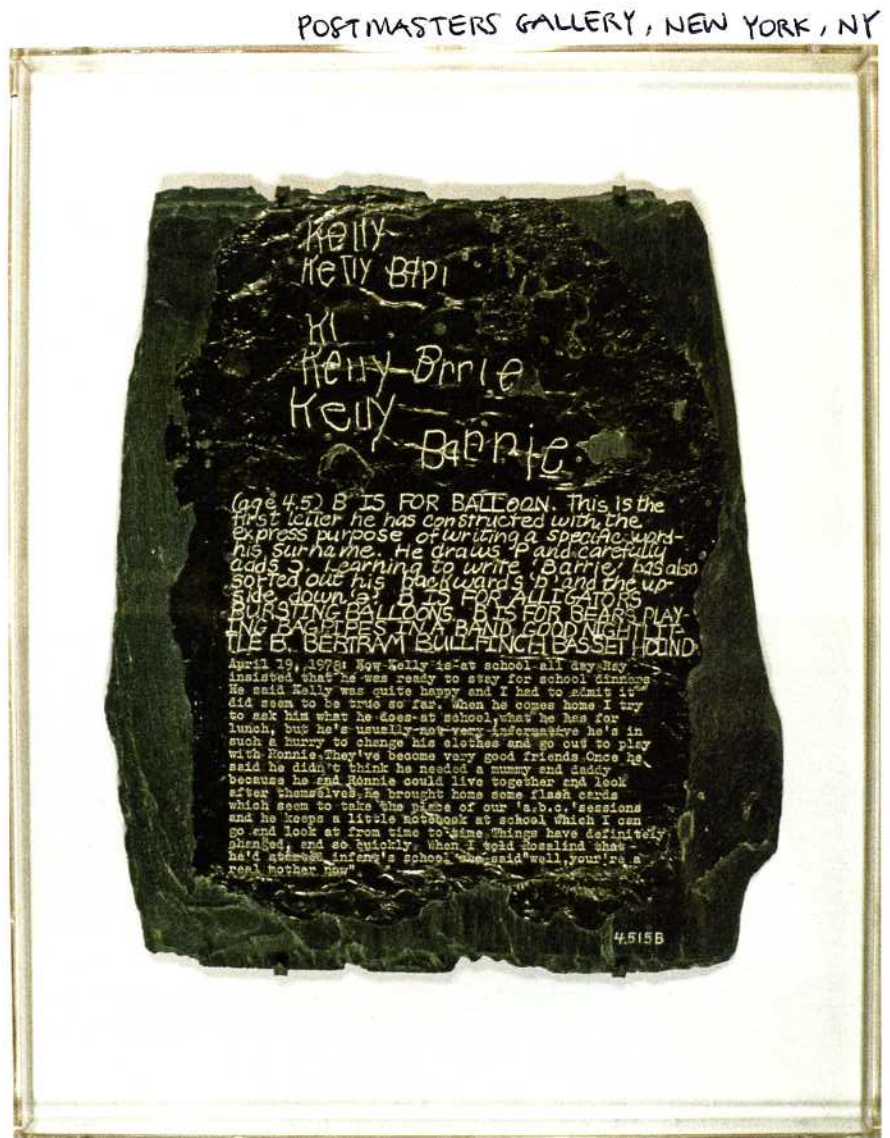 POSTMASTERS GALLERY, NEW YORK, NY
Kelly
Kelly BAPI
KI
Kelly Brrie
Kelly
Barrie
(age 4.5) B IS FOR BALLOON. This is the
first letter he has constructed with the
express purpose of writing a specific word-
his surname. He draws 'P' and carefully
adds 'ɔ'. Learning to write 'Barrie' has also
sorted out his backwards 'b' and the up-
side down 'a'. B IS FOR ALLIGATORS
BURSTING BALLOONS. B IS FOR BEARS PLAY-
ING BAGPIPES IN A BAND. GOOD NIGHT LIT-
TLE B. BERTRAM BULLFINCH BASSET HOUND.
April 19, 1978: Now Kelly is at school all day Ray
insisted that he was ready to stay for school dinners
He said Kelly was quite happy and I had to admit it
did seem to be true so far. When he comes home I try
to ask him what he does at school, what he has for
lunch, but he's usually not very informative he's in
such a hurry to change his clothes and go out to play
with Ronnie. They've become very good friends Once he
said he didn't think he needed a mummy and daddy
because he and Ronnie could live together and look
after themselves. He brought home some flash cards
which seem to take the place of our 'a.b.c.' sessions
and he keeps a little notebook at school which I can
go and look at from time to time Things have definitely
changed, and so quickly. When I told Rosalind that
he'd started infant's school she said "well, your're a
real mother now"
4.515B